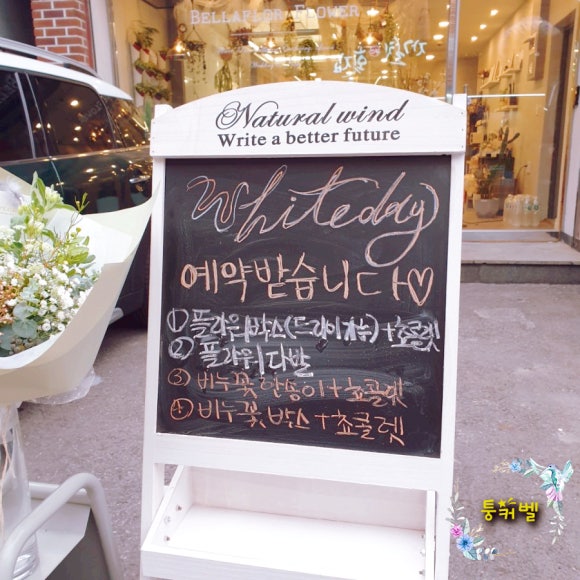 BELLAFLOR FLOWER
Natural wind
Write a better future
Whiteday
예약받습니다♡
① 플라워박스(드라이가능)+쵸콜렛
② 플라워다발
③ 비누꽃 한송이+쵸콜렛
④ 비누꽃, 박스+쵸콜렛
퉁커벨